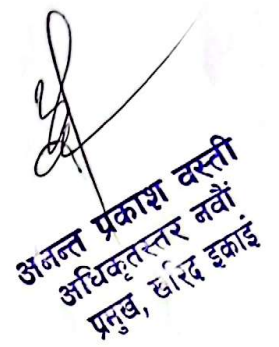 अनन्त प्रकाश वस्ती
अधिकृतस्तर नवौं
प्रमुख, खरिद इकाई